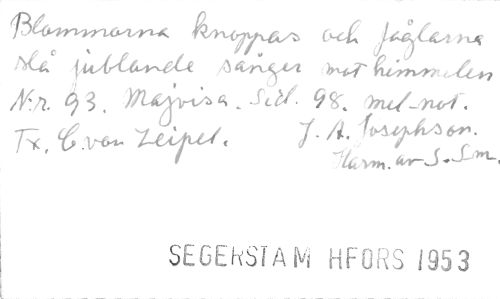 Blommorna knoppas och fåglarna
slå jublande sånger mot himmelen
N:r. 93. Majvisa. Sid. 98. mel-not.
Tx. C. von Zeipel. J. A. Josephson.
Harm. av S. Sm.
SEGERSTAM HFORS 1953